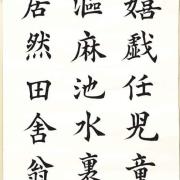 嬉戯任児童
漚麻池水裏
居然田舎翁